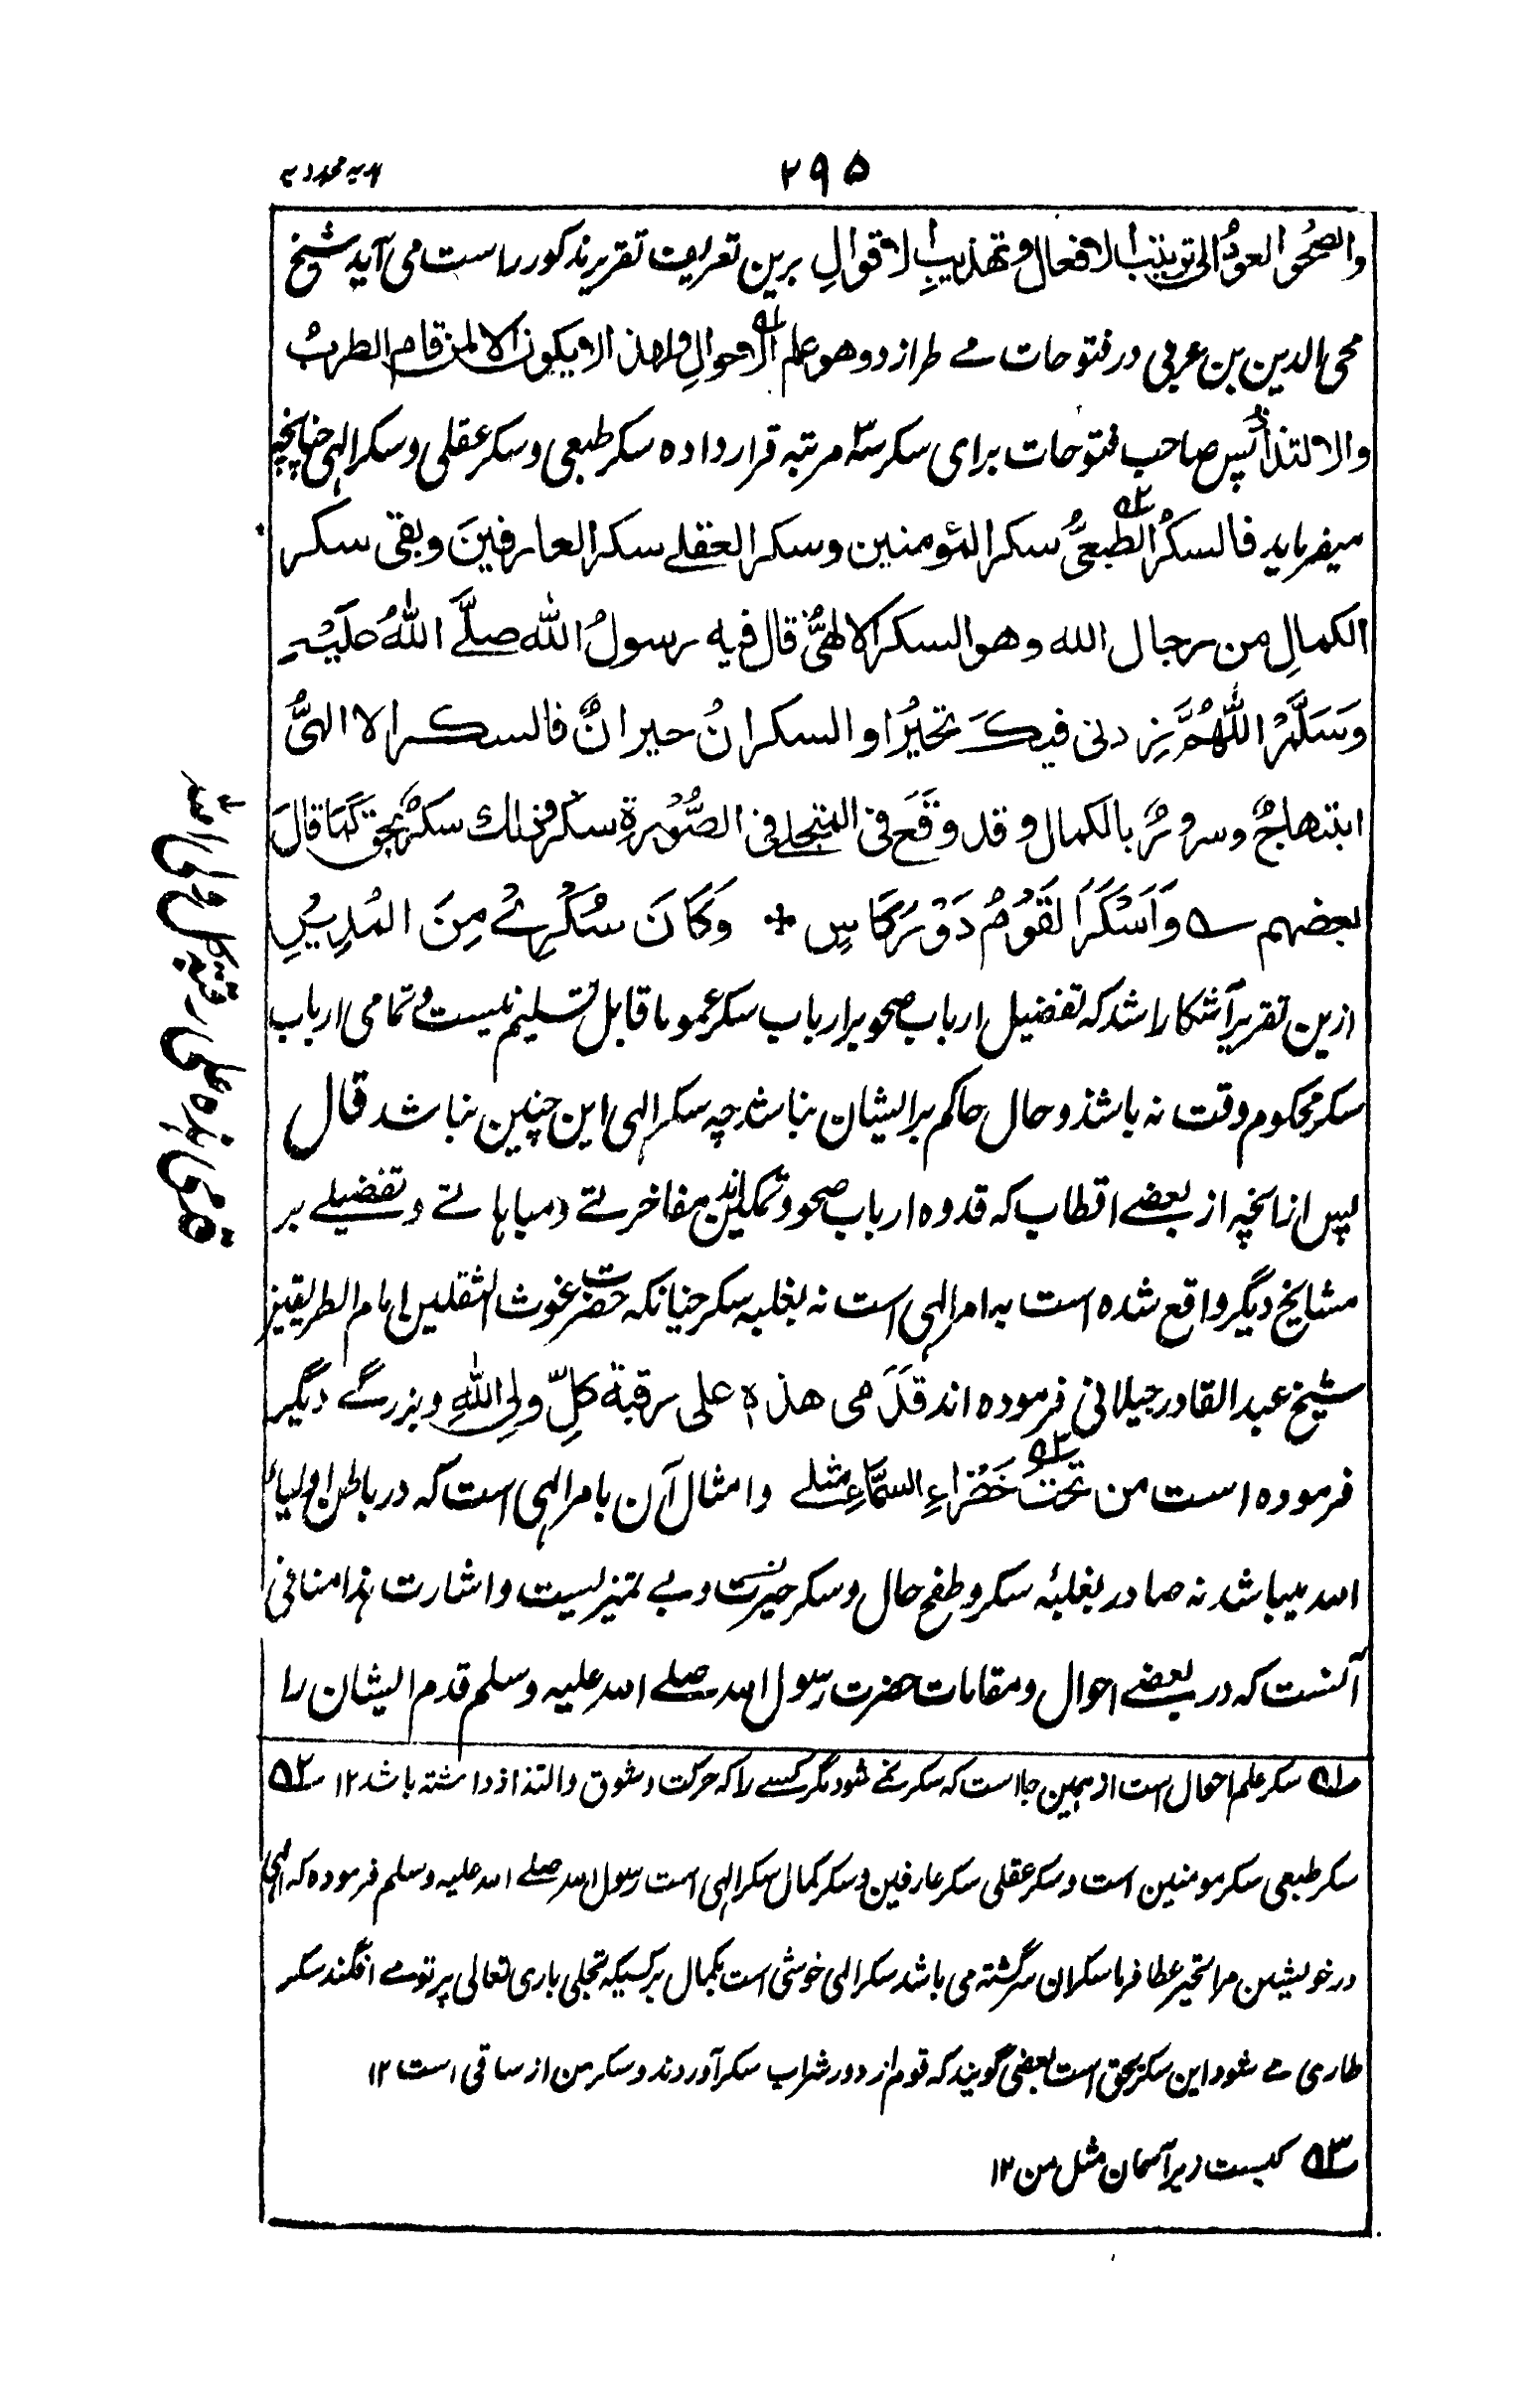 ۲۹۵
ہدیہ مجددیہ
والصَّحْوُ العودُ الی ترتیبِ الافعال وتهذیبِ الاقوالِ برین تعریف تقریر مذکور راست می آید شیخ
محی الدین بن عربی در فتوحات مے طرازد وهو علم الاحوالِ ولهذا لا یکون الا لمن قام الطربُ
والالتذاذُ پس صاحب فتوحات برای سکر سہ مرتبہ قرار دادہ سکر طبعی وسکر عقلی وسکر الٰہی چنانچہ
میفرماید فالسکرُ الطبعیُّ سکر المؤمنین وسکر العقلے سکر العارفینَ وبقی سکر
الکمالِ من رجال الله وهو السکر الالهیُّ قال فیه رسولُ الله صلَّے اللهُ عَلَیْہِ
وَسَلَّمْ اللّٰهُمَّ زِدنی فیکَ تحیرُا والسکرانُ حیرانٌ فالسکر الا الهیُّ
ابتهاجٌ وسرورٌ بالکمال وقد وقَعَ فی المتجلے فی الصُّوْرةِ سکر فذلك سکرٌ بحق کَمَا قالَ
بعضہم ؎ وَاَسْکَرَ القَوْمُ دَوْرُ کَاسٍ ٭ وَکَانَ سُکْرِیْ مِنَ المُدِیْرِ
ازین تقریر آشکارا شد کہ تفضیل ارباب صحو بر ارباب سکر عموما قابل تسلیم نیست و تمامی ارباب
سکر محکوم وقت نہ باشند وحال حاکم بر ایشان نباشد چہ سکر الٰہی این چنین نباشد قال
پس ازانچہ از بعضے اقطاب کہ قدوہ ارباب صحو وتمکین اند مفاخرتے و مباہاتے و تفضیلے بر
مشایخ دیگر واقع شدہ است بہ امر الٰہی است نہ بغلبہ سکر چنانکہ حضرت غوث الثقلین امام الطریقین
شیخ عبد القادر جیلانی فرمودہ اند قَدَمی هذه علی رقبة کلِّ ولی اللهِ و بزرگے دیگر
فرمودہ است من تحتَ خَضْرَاءِ السَّمَاءِ مثلے وامثال آن بامر الٰہی است کہ در باطن اولیاء
اللہ میباشد نہ صادر بغلبۂ سکر وطفح حال وسکر حیرت و بے تمیزیست واشارت ہذا منافی
آنست کہ در بعضے احوال ومقامات حضرت رسول اللہ صلے اللہ علیہ وسلم قدم ایشان را
قدمی ہذہ علی رقبۃ کل ولی اللہ
۵۱ سکر علم احوال است از ہمین جا است کہ سکر نمے شود مگر کسے را کہ حرکت وشوق والتذاذ داشتہ باشد ۱۲ ۵۲
سکر طبعی سکر مومنین است و سکر عقلی سکر عارفین و سکر کمال سکر الٰہی است رسول اللہ صلے اللہ علیہ وسلم فرمودہ کہ الٰہی
در خویشتن مرا تحیر عطا فرما سکران سرگشتہ می باشد سکر الٰہی خوشی است بکمال ہر کسیکہ تجلی باری تعالی پرتو مے افگند سکر
طاری مے شود این سکر بحق است بعضی گویند کہ قوم از دور شراب سکر آوردند و سکر من از ساقی است ۱۲
۵۳ کیست زیر آسمان مثل من ۱۲